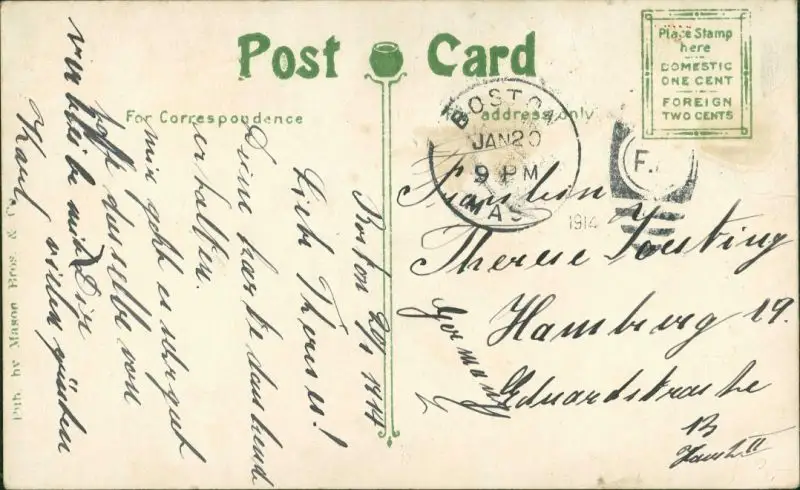 Post Card
For Correspondence
address only
Place Stamp
here
DOMESTIC
ONE CENT
FOREIGN
TWO CENTS
BOSTON
JAN 20
9 PM
MASS
1914
Boston 20/1 1914
Liebe Therese!
Deine Karte dankend
erhalten.
mir geht es sehr gut
hoffe dasselbe von
Dir
verbleibe mit vielen Grüßen
Karl
Fräulein
Therese
Hamburg 19.
Eduardstrasse
13
Haus II
Germany
Pub. by Mason Bros. & Co.